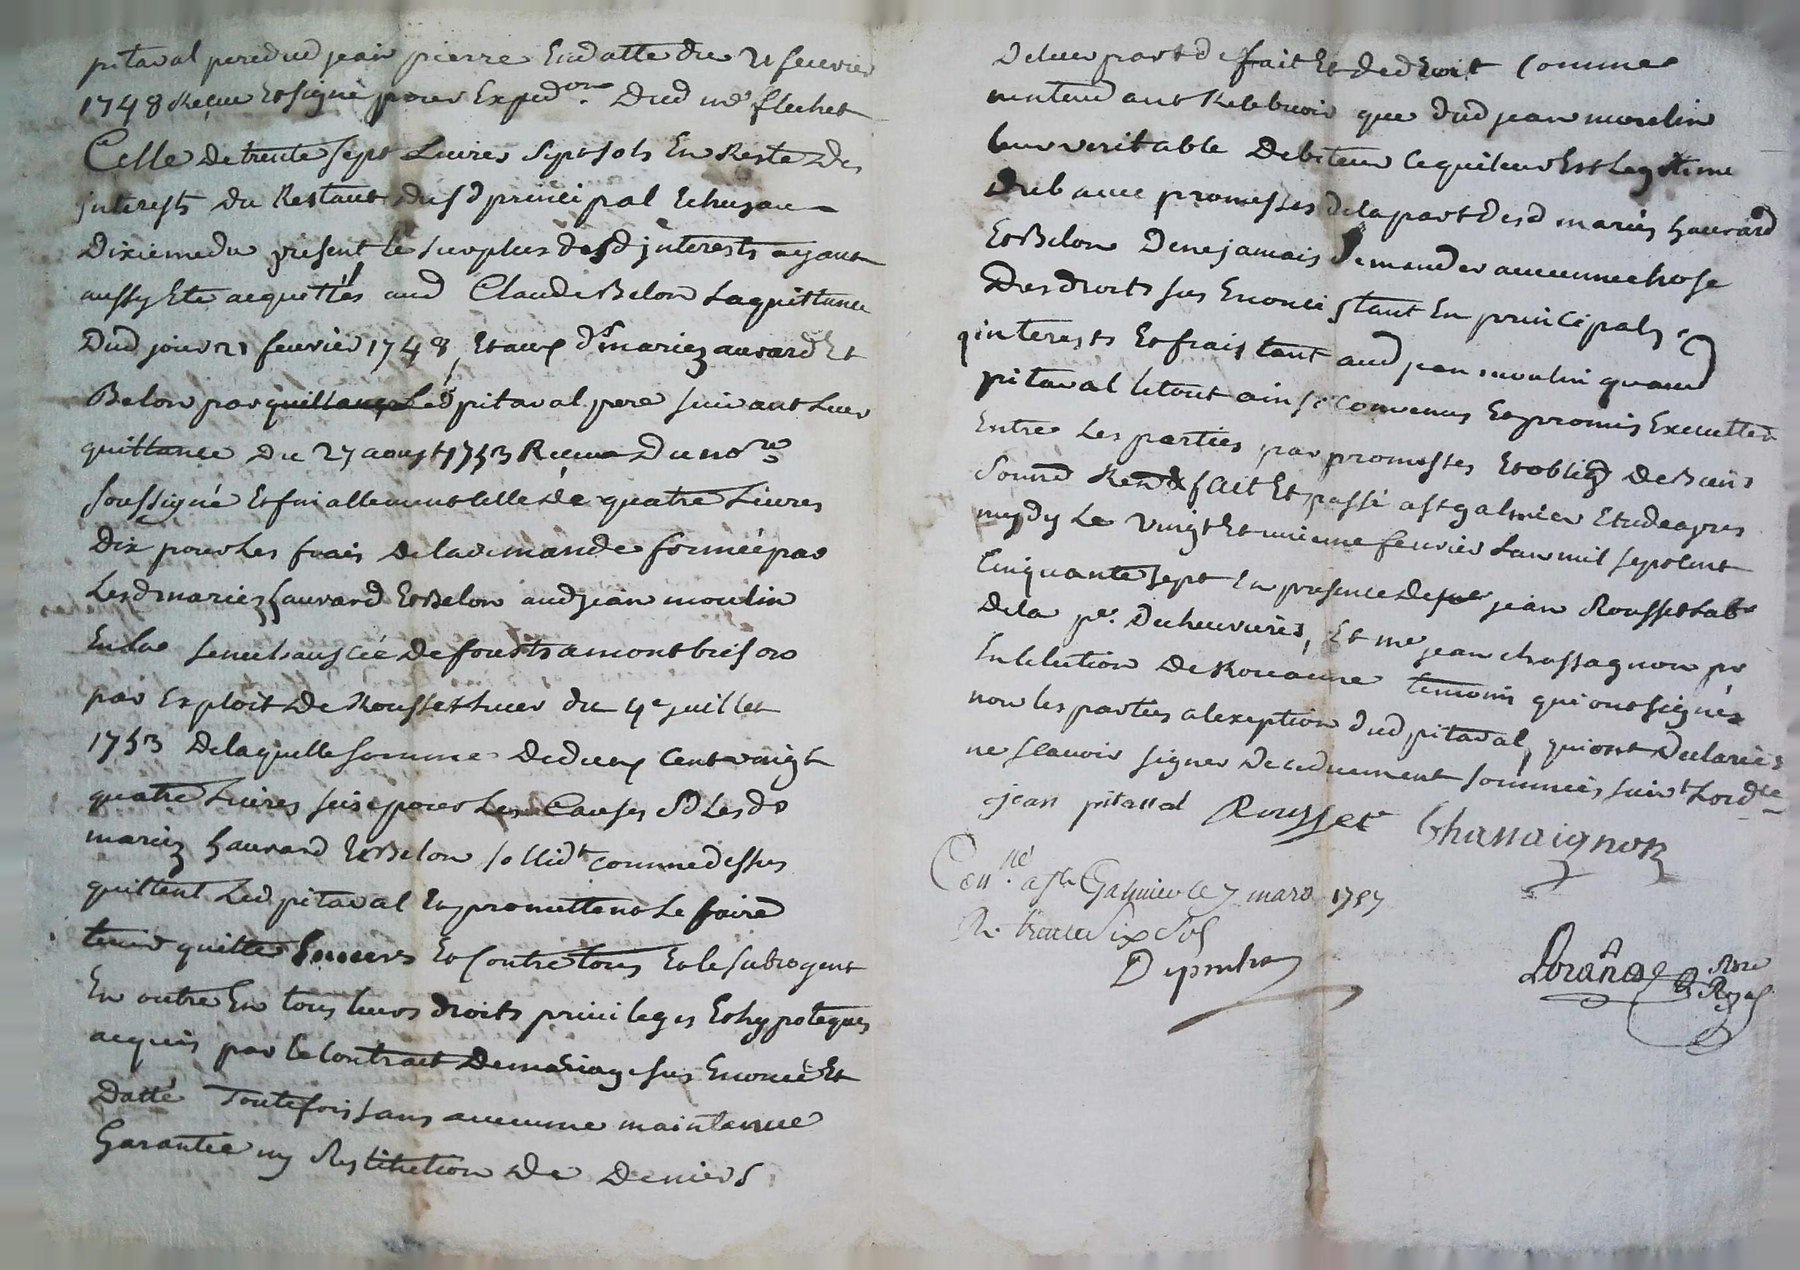 pitaval pere dud jean pierre En datte du 21 feuvrier
1748 Reçue Et signé pour Exped.on Dud me flechet
Celle de trente sept Livres sept sols En Reste des
jnterests du Restant dusd principal Echus au
Dixieme du present le surplus desd jnterests ayant
aussy Eté acquettés aud Claude Belon La quittance
Dud jour 21 feuvrier 1748, Et aux ds mariez auvard Et
Belon par Led pitaval pere suivant Leur
quittance du 27 aoust 1753 Reçue Du nore
soussigné Et finallement Celle de quatre Livres
Dix pour Les frais De la demande formée par
Lesd mariez hauvard Et Belon aud jean moulin
En la senechaussée De foretz a montbrison
par Exploit De Rousset huer du 4e juillet
1753 De laquelle somme De deux Cent vingt
quatre Livres seize pour Les Causes sd Les ds
mariez hauvard Et Belon sollidt comme dessus
quittent Led pitaval En promettent Le faire
tenir quitte Envers Et Contre tous Et le subrogent
En outre En tous leurs droits privileges Et hypoteques
acquis par le Contract De mariage sus Enoncé Et
Datté Toutefois sans aucune maintenue
Garantie ny Restitution De Deniers
De leur part de fait Et de droit Comme
n'entendant Recevoir que dud jean moulin
leur veritable Debiteur Ce qui leur Est Legitime
Dub avec promesses de la part desd mariés hauvard
Et Belon De ne jamais Demander aucune chose
Des droits sus Enoncé, tant En principal,
interests Et frais tant aud jean moulin qu'aud
pitaval le tout ainsi Convenus Et promis Executter
Entre Les parties par promesses Et oblig De Biens
Soumd Rend fait Et passé a st galmier Etude apres
mydy Le Vingt Et unieme feuvrier L'an mil sept Cent
Cinquante sept En presence De jean Rousset habt
De la pe. De cheuvrieres, Et me jean chassagnon pr
En L'election De Roanne temoins qui ont signés
non les parties a l'exception dud pitaval, qui ont Declarées
ne sçavoir signer De ce duement sommées suivt Lordce
jean pitaval Rousset Chassaignon
Conné a st Galmier le 7 mars 1757
Re trente Six Sols
Lorange Nore Royal